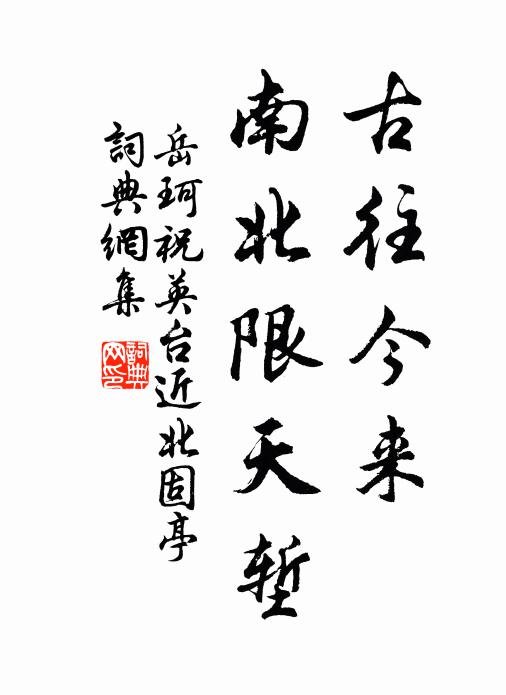 古往今来
南北限天堑
岳珂祝英台近北固亭
詞典網集
詞典网印